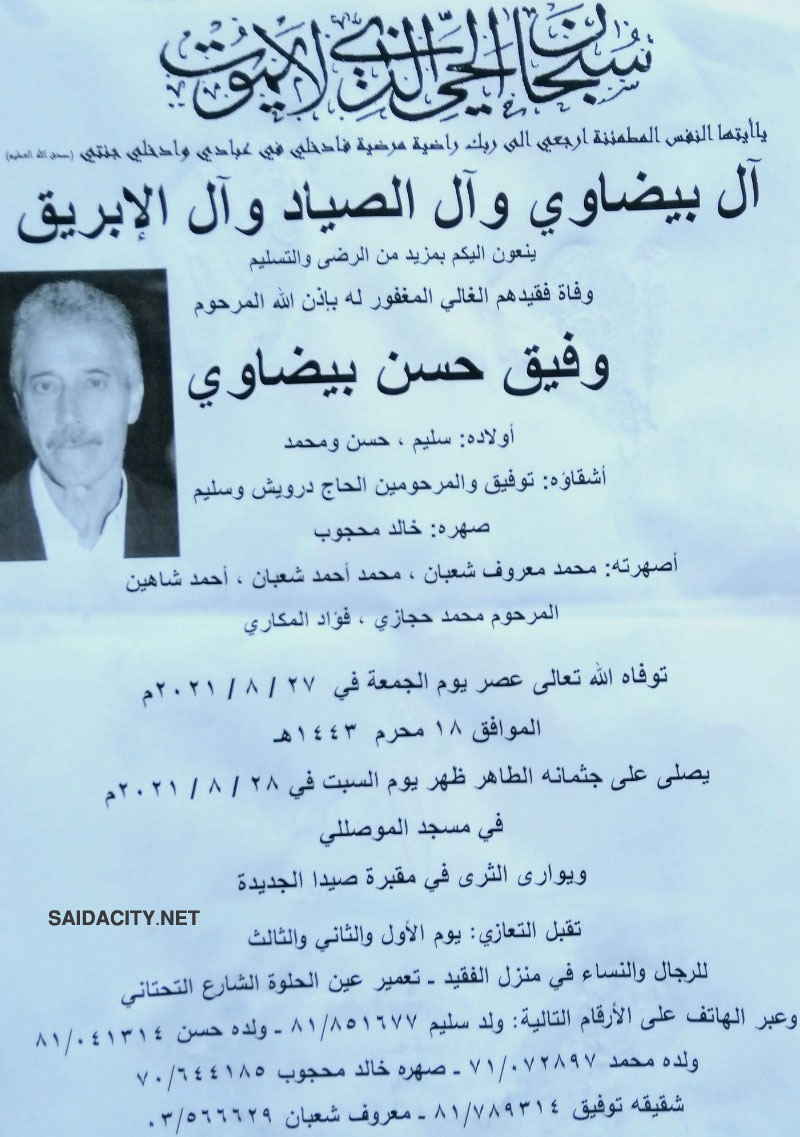 سبحان الحي الذي لا يموت
ياأيتها النفس المطمئنة ارجعي الى ربك راضية مرضية فادخلي في عبادي وادخلي جنتي (صدق الله العظيم)
آل بيضاوي وآل الصياد وآل الإبريق
ينعون اليكم بمزيد من الرضى والتسليم
وفاة فقيدهم الغالي المغفور له بإذن الله المرحوم
وفيق حسن بيضاوي
أولاده: سليم ، حسن ومحمد
أشقاؤه: توفيق والمرحومين الحاج درويش وسليم
صهره: خالد محجوب
أصهرته: محمد معروف شعبان ، محمد أحمد شعبان ، أحمد شاهين
المرحوم محمد حجازي ، فؤاد المكاري
توفاه الله تعالى عصر يوم الجمعة في ٢٧ / ٨ / ٢٠٢١م
الموافق ١٨ محرم ١٤٤٣هـ
يصلى على جثمانه الطاهر ظهر يوم السبت في ٢٨ / ٨ / ٢٠٢١م
في مسجد الموصللي
ويوارى الثرى في مقبرة صيدا الجديدة
SAIDACITY.NET
تقبل التعازي: يوم الأول والثاني والثالث
للرجال والنساء في منزل الفقيد ـ تعمير عين الحلوة الشارع التحتاني
وعبر الهاتف على الأرقام التالية: ولد سليم ٨١/٨٥١٦٧٧ ـ ولده حسن ٨١/٠٤١٣١٤
ولده محمد ٧١/٠٧٢٨٩٧ ـ صهره خالد محجوب ٧٠/٦٤٤١٨٥
شقيقه توفيق ٨١/٧٨٩٣١٤ ـ معروف شعبان ٠٣/٥٦٦٦٢٩